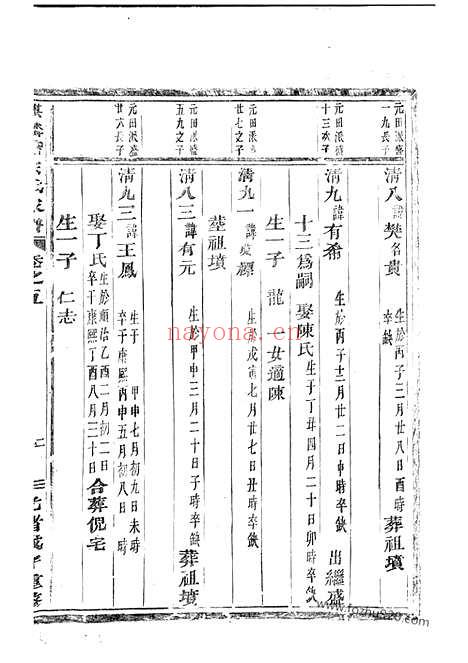 元田派盛
一九長子
清八諱樊名貴 生於丙子三月廿八日酉時 卒缺 葬祖墳
元田派盛
十三次子
清九諱有希 生於丙子十二月廿二日申時卒缺 出繼盛
十三爲嗣 娶陳氏 生于丁丑四月二十日卯時卒缺
生一子 龍 女適陳
元田派盛
廿七之子
清九一諱 生於戊寅七月廿七日丑時卒缺
葬祖墳
元田派盛
五九之子
清八三諱有元 生於甲申三月二十日子時卒缺 葬祖墳
元田派盛
廿六長子
清九三諱王鳳 生于甲申七月初九日未時 卒于康熙丙申五月初八日時
娶丁氏 生於順治乙酉二月初二日 卒于康熙丁酉八月三十日 合葬倪宅
生一子 仁志
nayona.cn
www.fozhu920.com